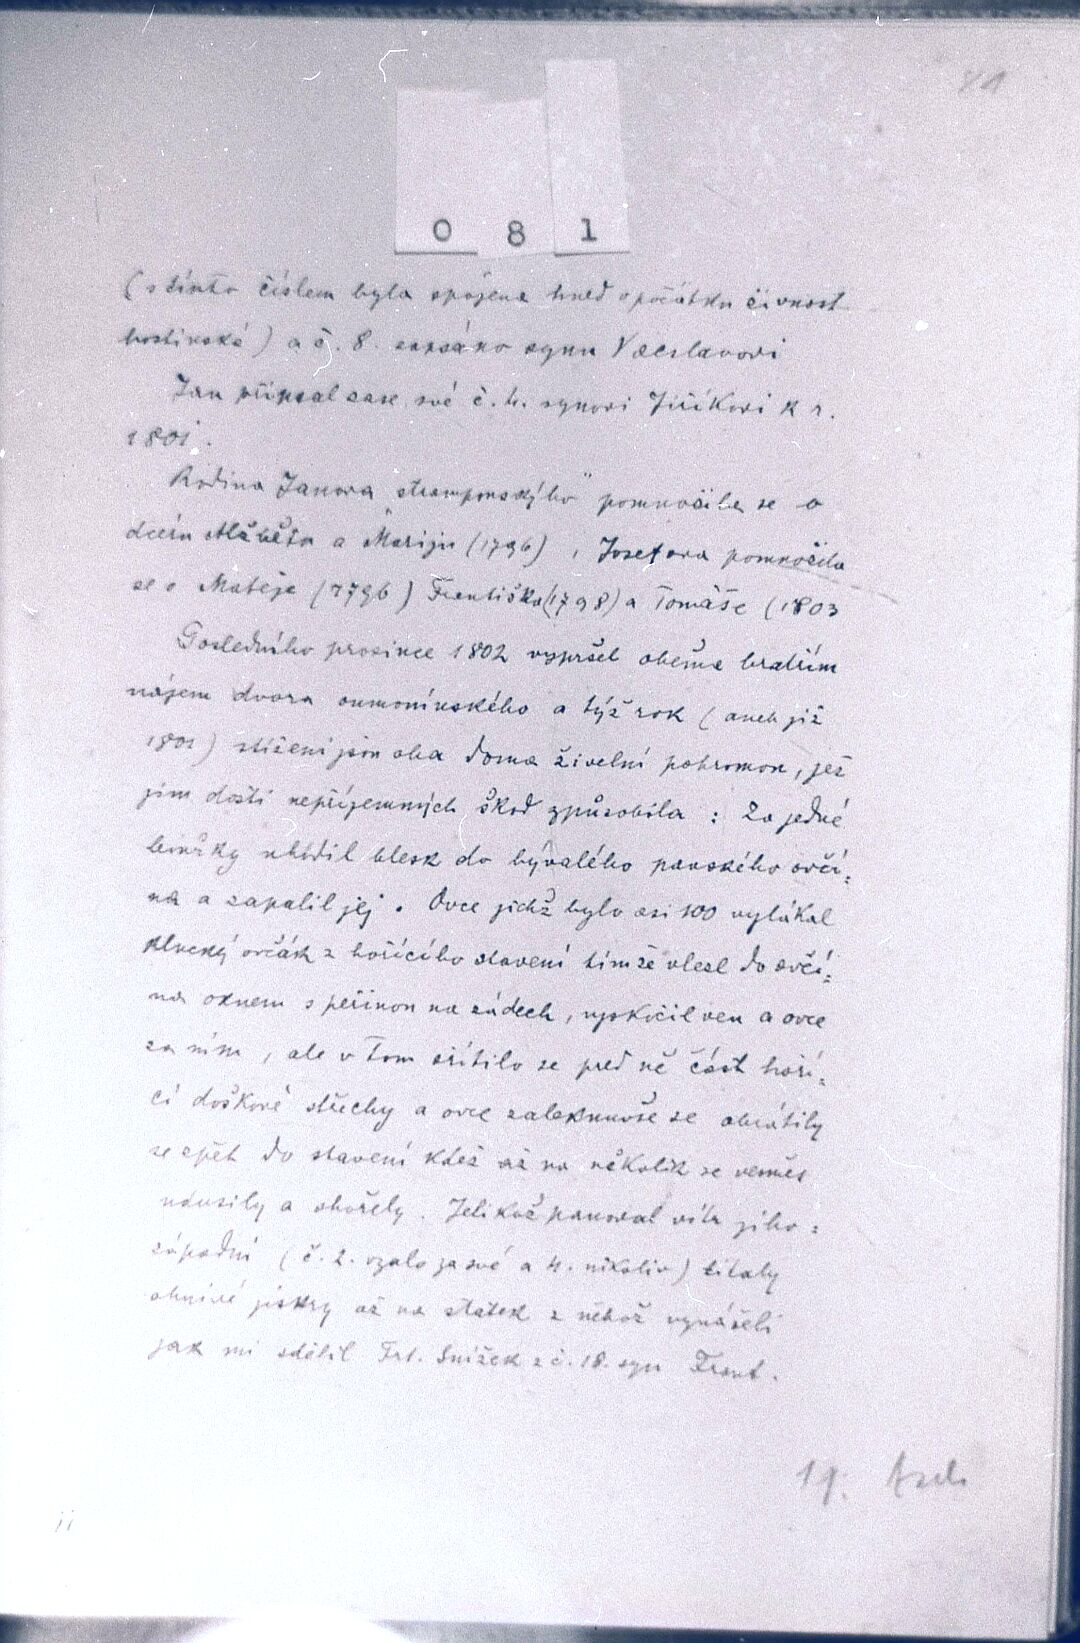 81
0 8 1
(s tímto číslem byla spojena hned s počátku živnost
hostinská) a č. 8. zapsáno synu Václavovi
Jan připsal zase své č. 4. synovi Jiříkovi k r.
1801.
Rodina Janova "strampouského" pomnožila se o
dceru Alžbětu a Mariju (1796), Josefova pomnožila
se o Matěje (1796) Františka (1798) a Tomáše (1803
Posledního prosince 1802 vypršel oběma bratřím
nájem dvora oumonínského a týž rok (aneb již
1801) stiženi jsou oba doma živelní pohromou, jež
jim dosti nepříjemných škod způsobila: Za jedné
bouřky uhodil blesk do bývalého panského ovčí=
na a zapálil jej. Ovce jichž bylo asi 100 vylákal
klucký ovčák z hořícího stavení tím že vlezl do ovčí=
na oknem s peřinou na zádech, vyskočil ven a ovce
za ním, ale v tom zřítilo se před ně část hoří=
cí doškové střechy a ovce zaleknuvše se obrátily
se zpět do stavení kdež až na několik se vesměs
udusily a shořely. Jelikož panoval vítr jiho=
západní (č. 2. vzalo za své a 4. nikoliv) lítaly
ohnivé jiskry až na statek z něhož vynášeli
jak mi sdělil Frt. Snížek z č. 18. syn Frant.